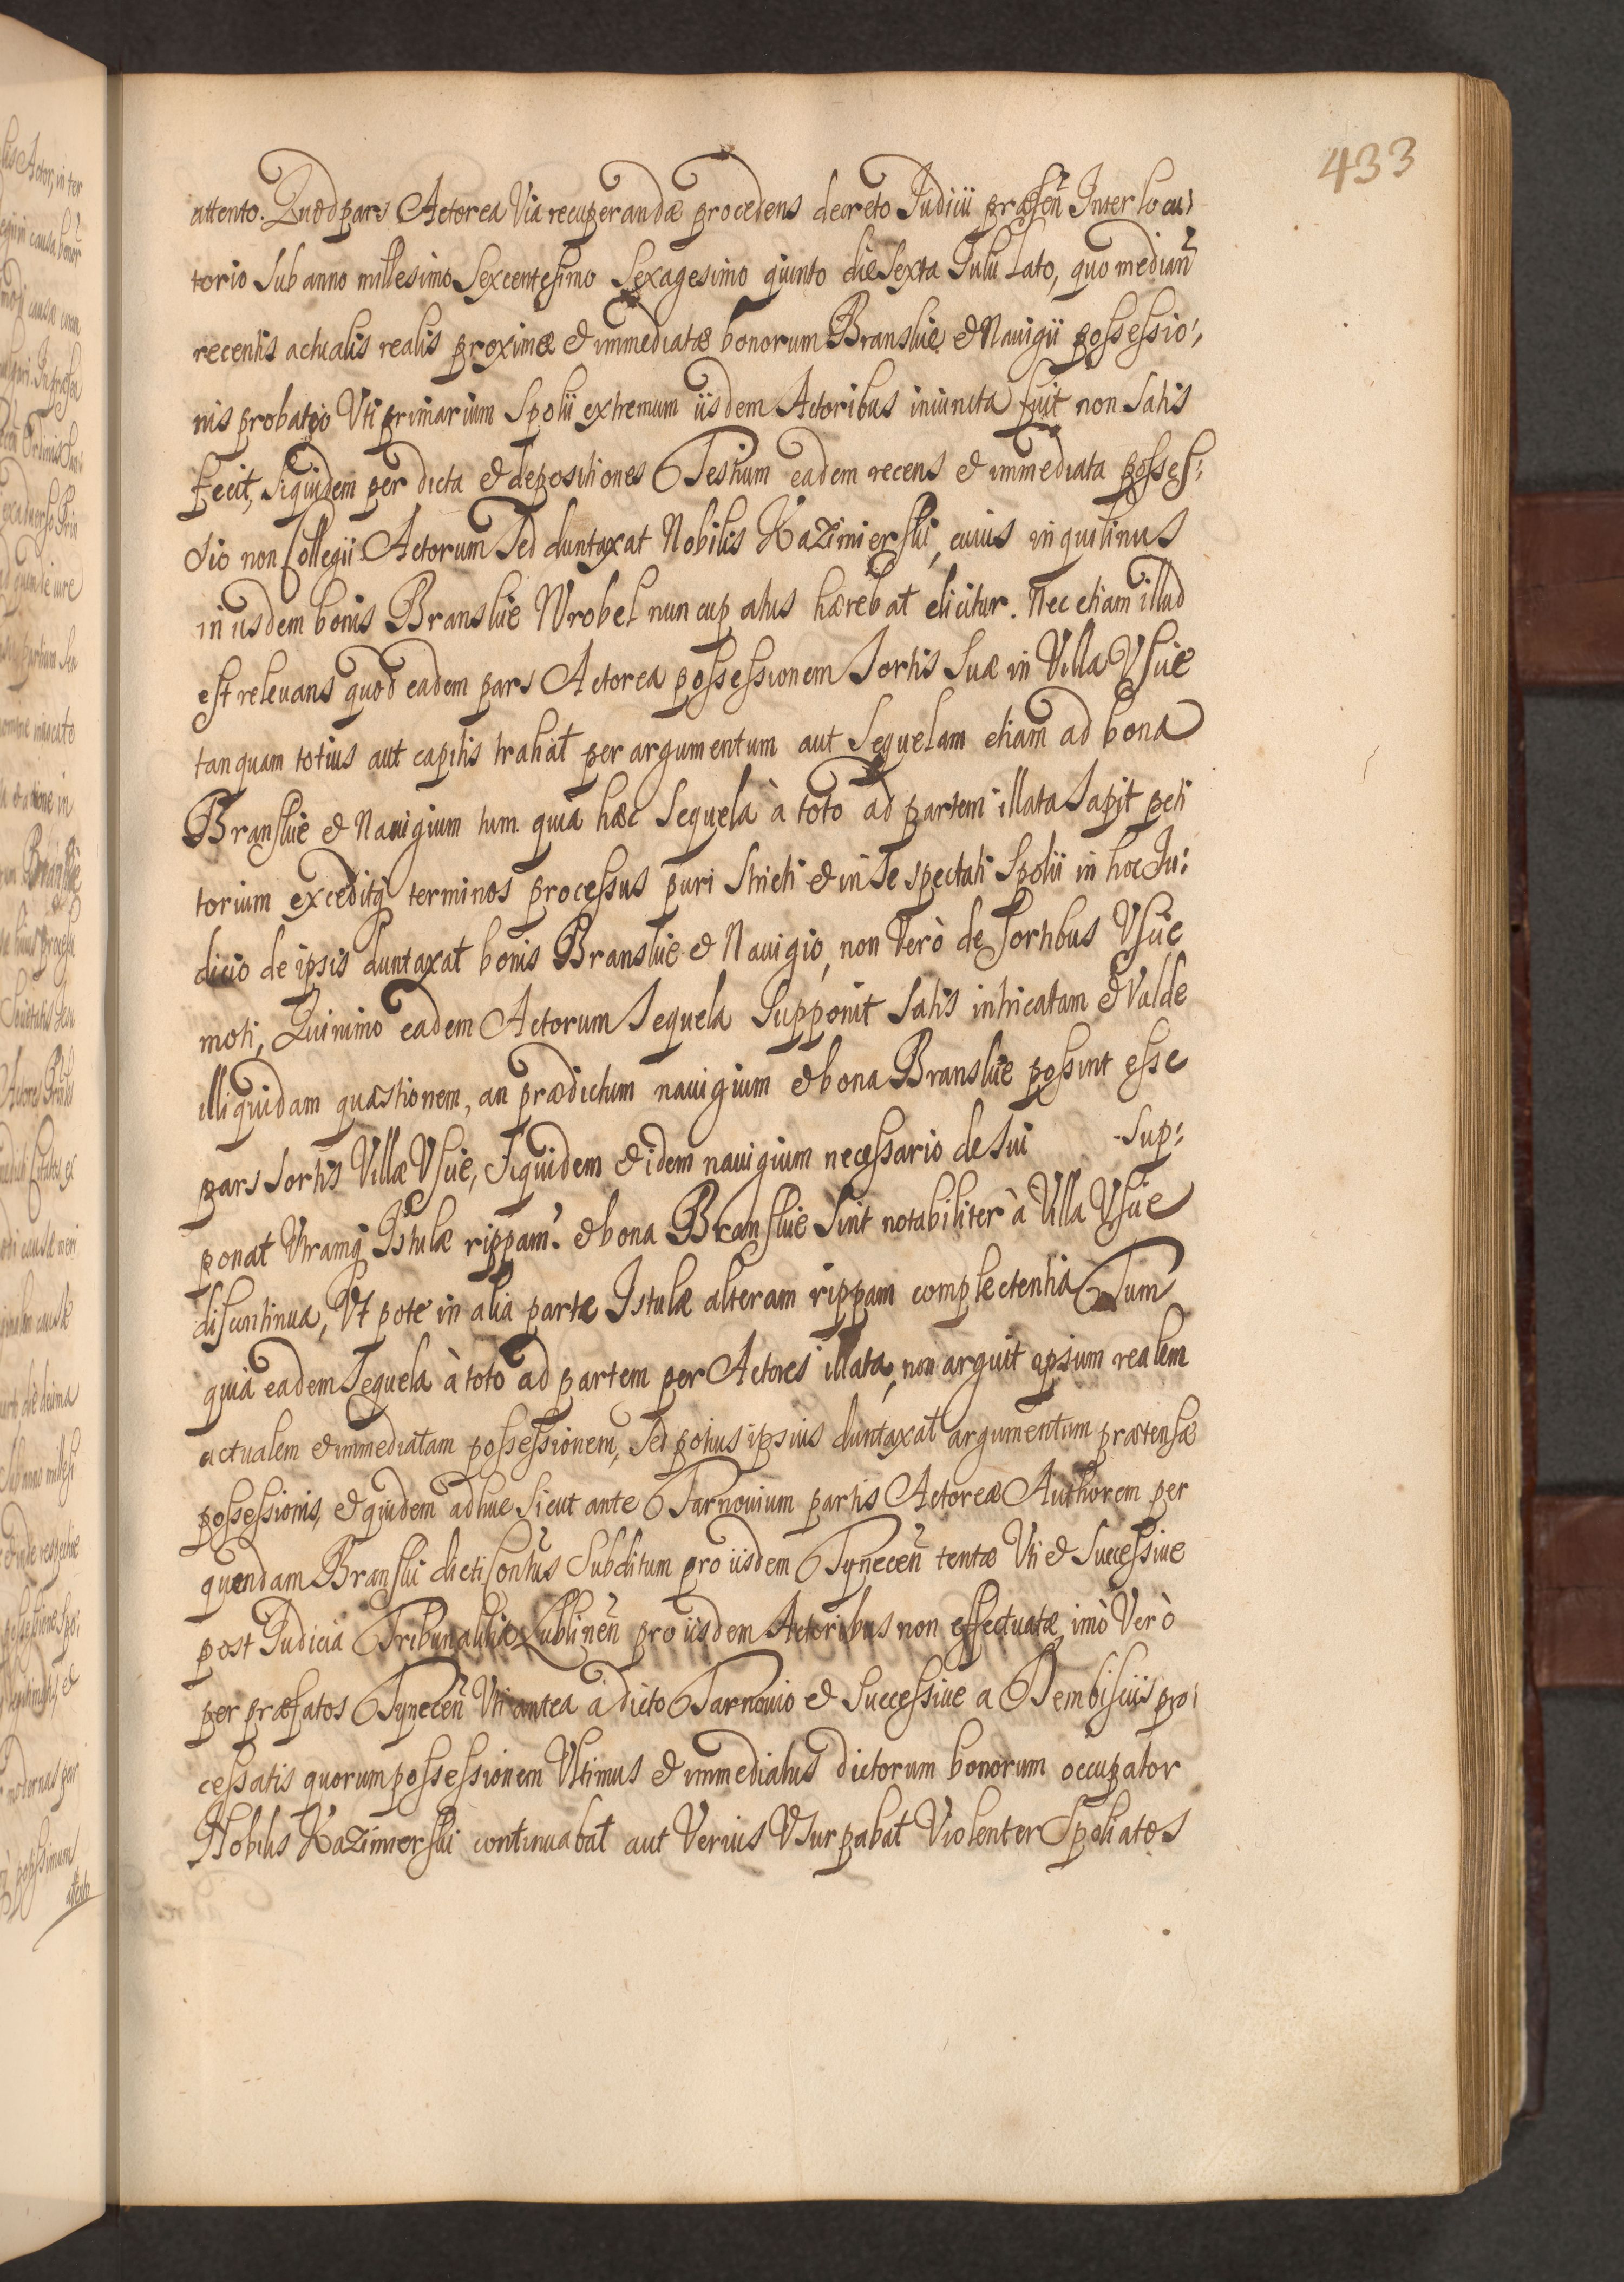 433
attento. Quod pars Actorea Via recuperandæ procedens decreto Judicii præsen̄ Interlocu:
torio Sub anno millesimo Sexcentesimo Sexagesimo quinto die Sexta Julii Lato, quo median̄
recentis actualis realis proximæ & immediatæ bonorum Branskie & Nauigii possessio:
nis probatio Vti primarium Spolii extremum iisdem Actoribus iniuncta fuit non Satis
fecit, Siquidem per dicta & depositiones Testium eadem recens & immediata posses:
sio non Collegii Actorum Sed duntaxat Nobilis Kazimierski, cuius inquilinus
in iisdem bonis Branskie Wrobel nuncupatus hærebat elicitur. Nec etiam illud
est releuans quod eadem pars Actorea possessionem Sortis Suæ in Villa Vscie
tanquam totius aut capitis trahat per argumentum aut Sequelam etiam ad bona
Branskie & Nauigium tum quia hæc Sequela à toto ad partem illata Sapit peti
torium exceditq terminos processus puri Stricti & in Se spectati Spolii in hoc Ju:
dicio de ipsis duntaxat bonis Branskie & Nauigio, non Verò de Sortibus Vscie
moti, Quinimo eadem Actorum Sequela Supponit Satis intricatam & Valde
illiquidam quæstionem, an prædictum nauigium & bona Branskie possint esse
pars Sortis Villæ Vscie, Siquidem & idem nauigium necessario de Sui Sup:
ponat Vtramq Istulæ rippam. & bona Branskie Sint notabiliter à Villa Vscie
discontinua, Vt pote in alia parte Istulæ alteram rippam complectentia Tum
quia eadem Sequela à toto ad partem per Actores illata, non arguit ipsum realem
actualem & immediatam possessionem, Sed potius ipsius duntaxat argumentum prætensæ
possessionis, & quidem adhuc Sicut ante Tarnouium partis Actoreæ Authorem per
quendam Branski dicti Sontus Subditum pro iisdem Tynecen̄ tentæ Vti & Successiue
post Judicia Tribunalitia Lublinen̄ pro iisdem Actoribus non effectuatæ, imò Verò
per præfatos Tynecen̄ Vti antea à dicto Tarnouio & Successiue a Dembisciis pro:
cessatis quorum possessionem Vltimus & immediatus dictorum bonorum occupator
Nobilis Kazimierski continuabat aut Verius Vsurpabat Violenter Spoliatos